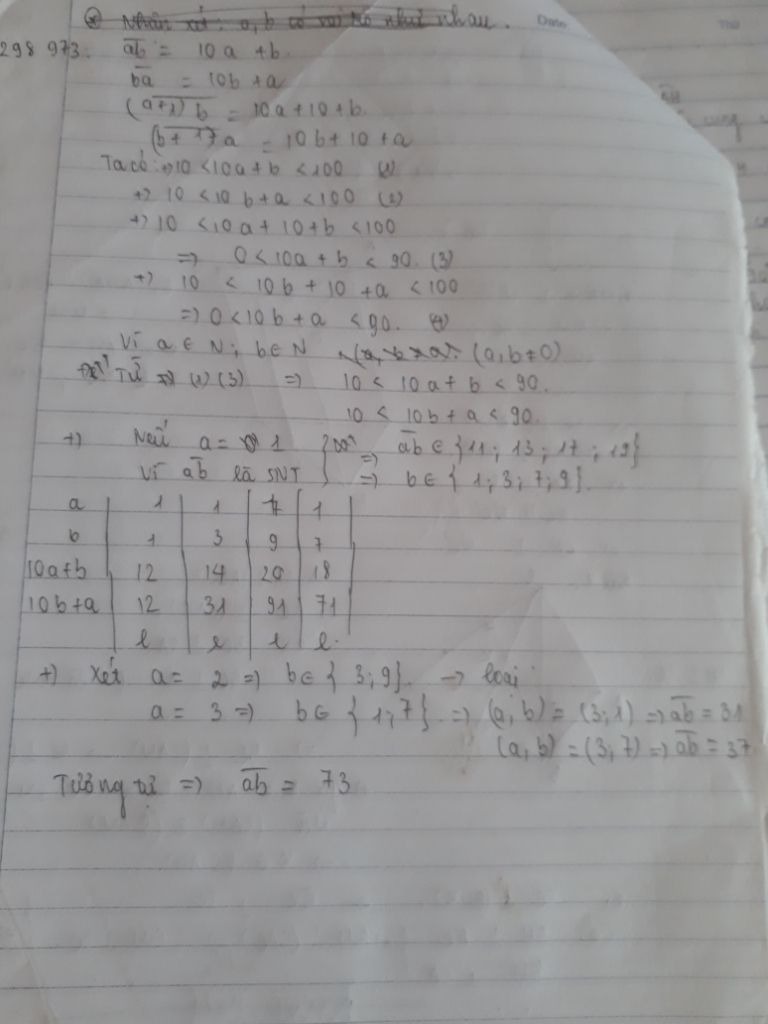 * Nhận xét: a, b có vai trò như nhau.
Date
298 973. ab = 10a + b
ba = 10b + a
(a+1) b = 10a + 10 + b.
(b + 1) a = 10b + 10 + a
Ta có: +) 10 < 10a + b < 100 (1)
+) 10 < 10b + a < 100 (2)
+) 10 < 10a + 10 + b < 100
=> 0 < 10a + b < 90. (3)
+) 10 < 10b + 10 + a < 100
=> 0 < 10b + a < 90. (4)
Vì a ∈ N; b ∈ N (a, b ≠ 0)
Từ (1) (3) => 10 < 10a + b < 90.
10 < 10b + a < 90.
+) Nếu a = 1 } => ab ∈ {11; 13; 17; 19}
Vì ab là SNT => b ∈ {1; 3; 7; 9}.
a | 1 | 1 | 1 | 1
b | 1 | 3 | 9 | 7
10a+b | 12 | 14 | 20 | 18
10b+a | 12 | 31 | 91 | 71
l l l l.
+) Xét a = 2 => b ∈ {3; 9}. -> loại
a = 3 => b ∈ {1; 7} => (a, b) = (3; 1) => ab = 31
(a, b) = (3; 7) => ab = 37
Tương tự => ab = 73